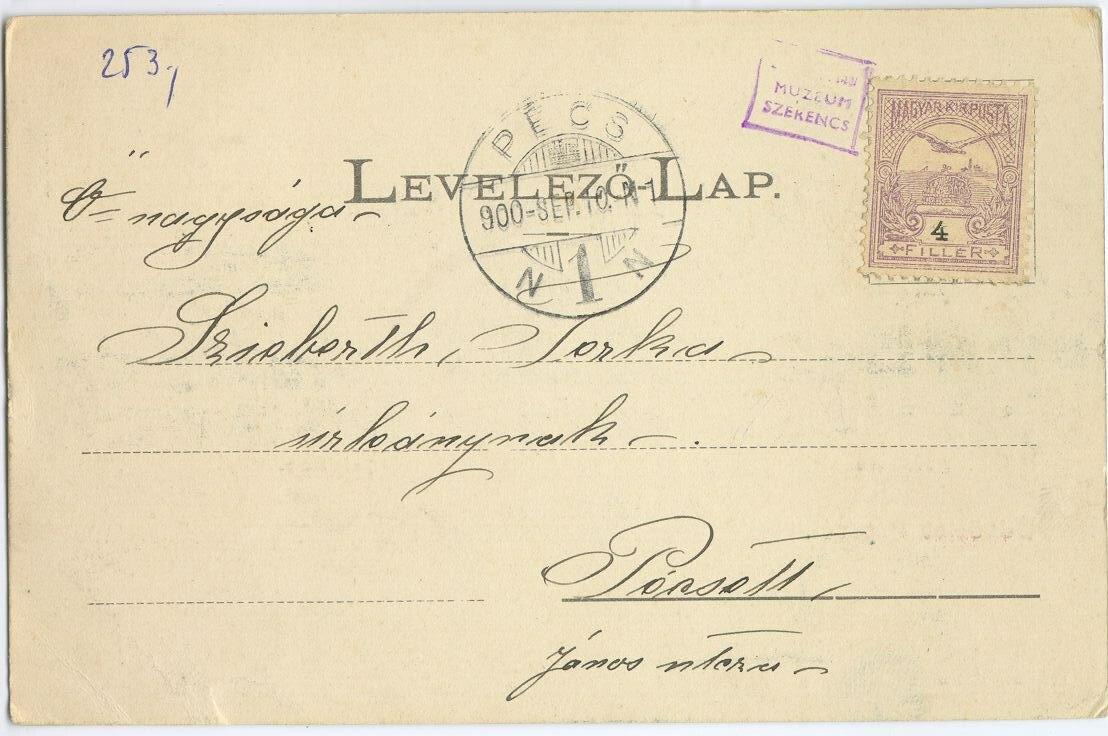 253.,
MUZEUM
SZEKENCS
MAGYAR KIR. POSTA
4
FILLÉR
PÉCS
900-SEP.10. N1
N 1 N
LEVELEZŐ-LAP.
Ő nagysága
Szieberth Torka
úrleánynak.
Pécsett,
János utcza